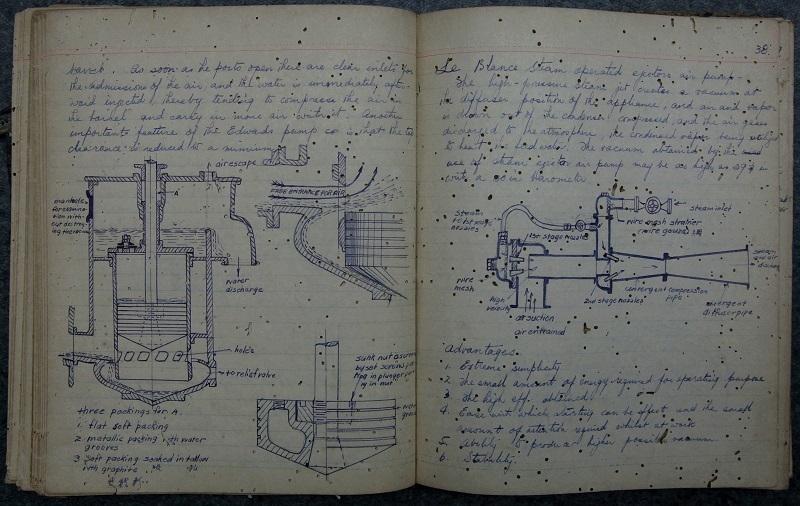 barrel. As soon as the ports open there are clear inlets for
the admission of the air, and the water is immediately after-
ward injected, thereby tending to compress the air in
the barrel and carry in more air with it. Another
importants feature of the Edwards pump is that the top
clearance is reduced to a minimum
air escape
A
FREE ENTRANCE FOR AIR
manhole
for examina
tion with
out destroy
water
discharge
holes
to relief valve
three packings for A.
1. flat soft packing
2. metallic packing with water
grooves
3. Soft packing soaked in tallow
with graphite
sunk nut
by set screws
in nut
38
Le Blance Steam operated ejectors air pump -
The high-pressure steam jet creates a vacuum at
the diffuser position of the appliance, and an air vapor
is drawn out of the condenser compressed, and the air gases
discharged to the atmosphere, the condensed vapor being
to heat the feed water. The vacuum obtained by the
use of steam ejector air pump may be as high as
with a 30 in barometer
steam inlet
wire mesh strainer
(wire gauze)
Steam
to 1st stage
nozzles
1st stage nozzles
wire
mesh
high
velocity
air suction
air entrained
2nd stage nozzles
convergent compression
pipe
divergent
diffuser pipe
and air
Advantages.
1. Extreme simplicity
2. The small amount of energy required for operating purpose
3. The high eff. obtained
4. Ease with which starting can be effect, and the small
amount of attention required whilst at work
5. Ability to produce higher possible vacuum
6. Stability